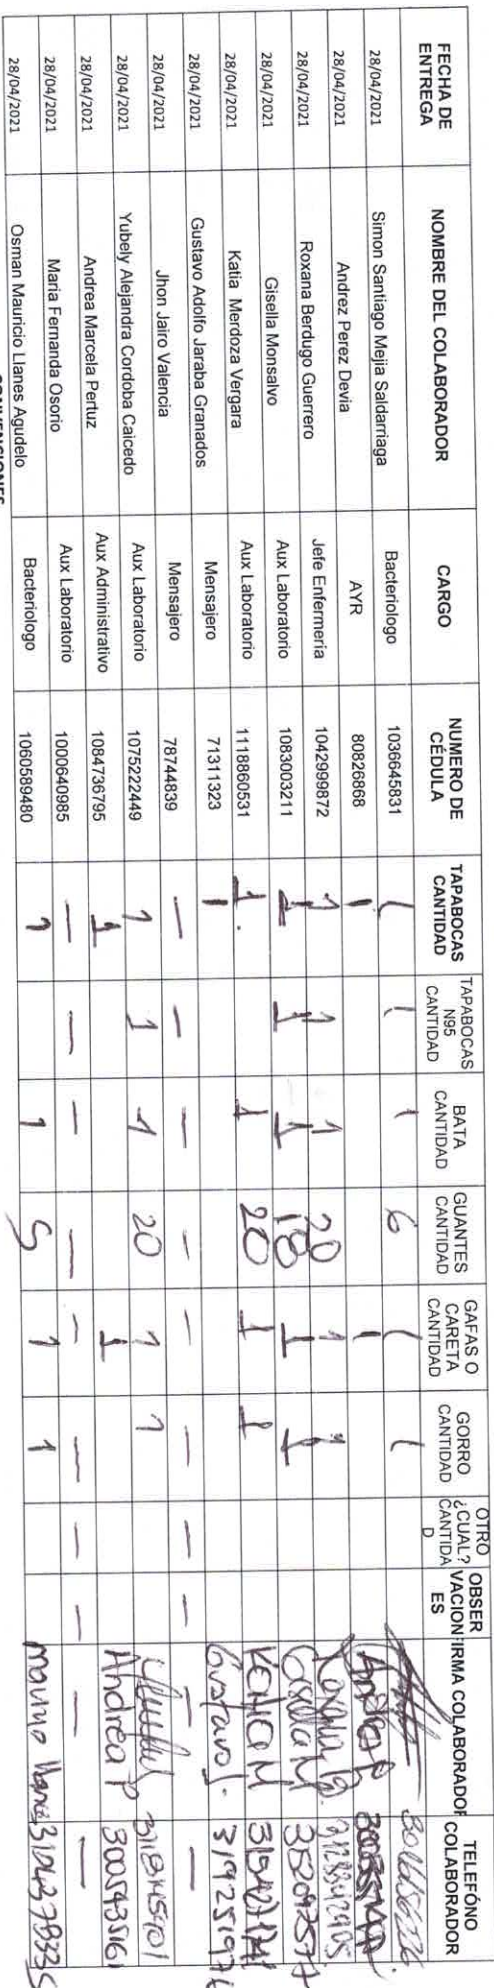 FECHA DE ENTREGA NOMBRE DEL COLABORADOR CARGO NUMERO DE CÉDULA TAPABOCAS CANTIDAD TAPABOCAS N95 CANTIDAD BATA CANTIDAD GUANTES CANTIDAD GAFAS O CARETA CANTIDAD GORRO CANTIDAD OTRO ¿CUAL? CANTIDAD OBSERVACIONES FIRMA COLABORADOR TELEFÓNO COLABORADOR
28/04/2021 Simon Santiago Mejia Saldarriaga Bacteriologo 1036645831 1 1 1 6 1 1
28/04/2021 Andrez Perez Devia AYR 80826868 1 1 Andres P
28/04/2021 Roxana Berdugo Guerrero Jefe Enfermeria 1042999872 1 1 1 20 1 1
28/04/2021 Gisella Monsalvo Aux Laboratorio 1083003211 1 1 1 18 1 1 Gisella M
28/04/2021 Katia Merdoza Vergara Aux Laboratorio 1118860531 1 1 20 1 1 Katia M
28/04/2021 Gustavo Adolfo Jaraba Granados Mensajero 71311323 1 Gustavo J.
28/04/2021 Jhon Jairo Valencia Mensajero 78744839 — — — — — — — — — —
28/04/2021 Yubely Alejandra Cordoba Caicedo Aux Laboratorio 1075222449 1 1 1 20 1 1
28/04/2021 Andrea Marcela Pertuz Aux Administrativo 1084736795 1 1 Andrea P
28/04/2021 Maria Fernanda Osorio Aux Laboratorio 1000640985 — — — — — — — — — —
28/04/2021 Osman Mauricio Llanes Agudelo Bacteriologo 1060589480 1 1 5 1 1
CONVENCIONES